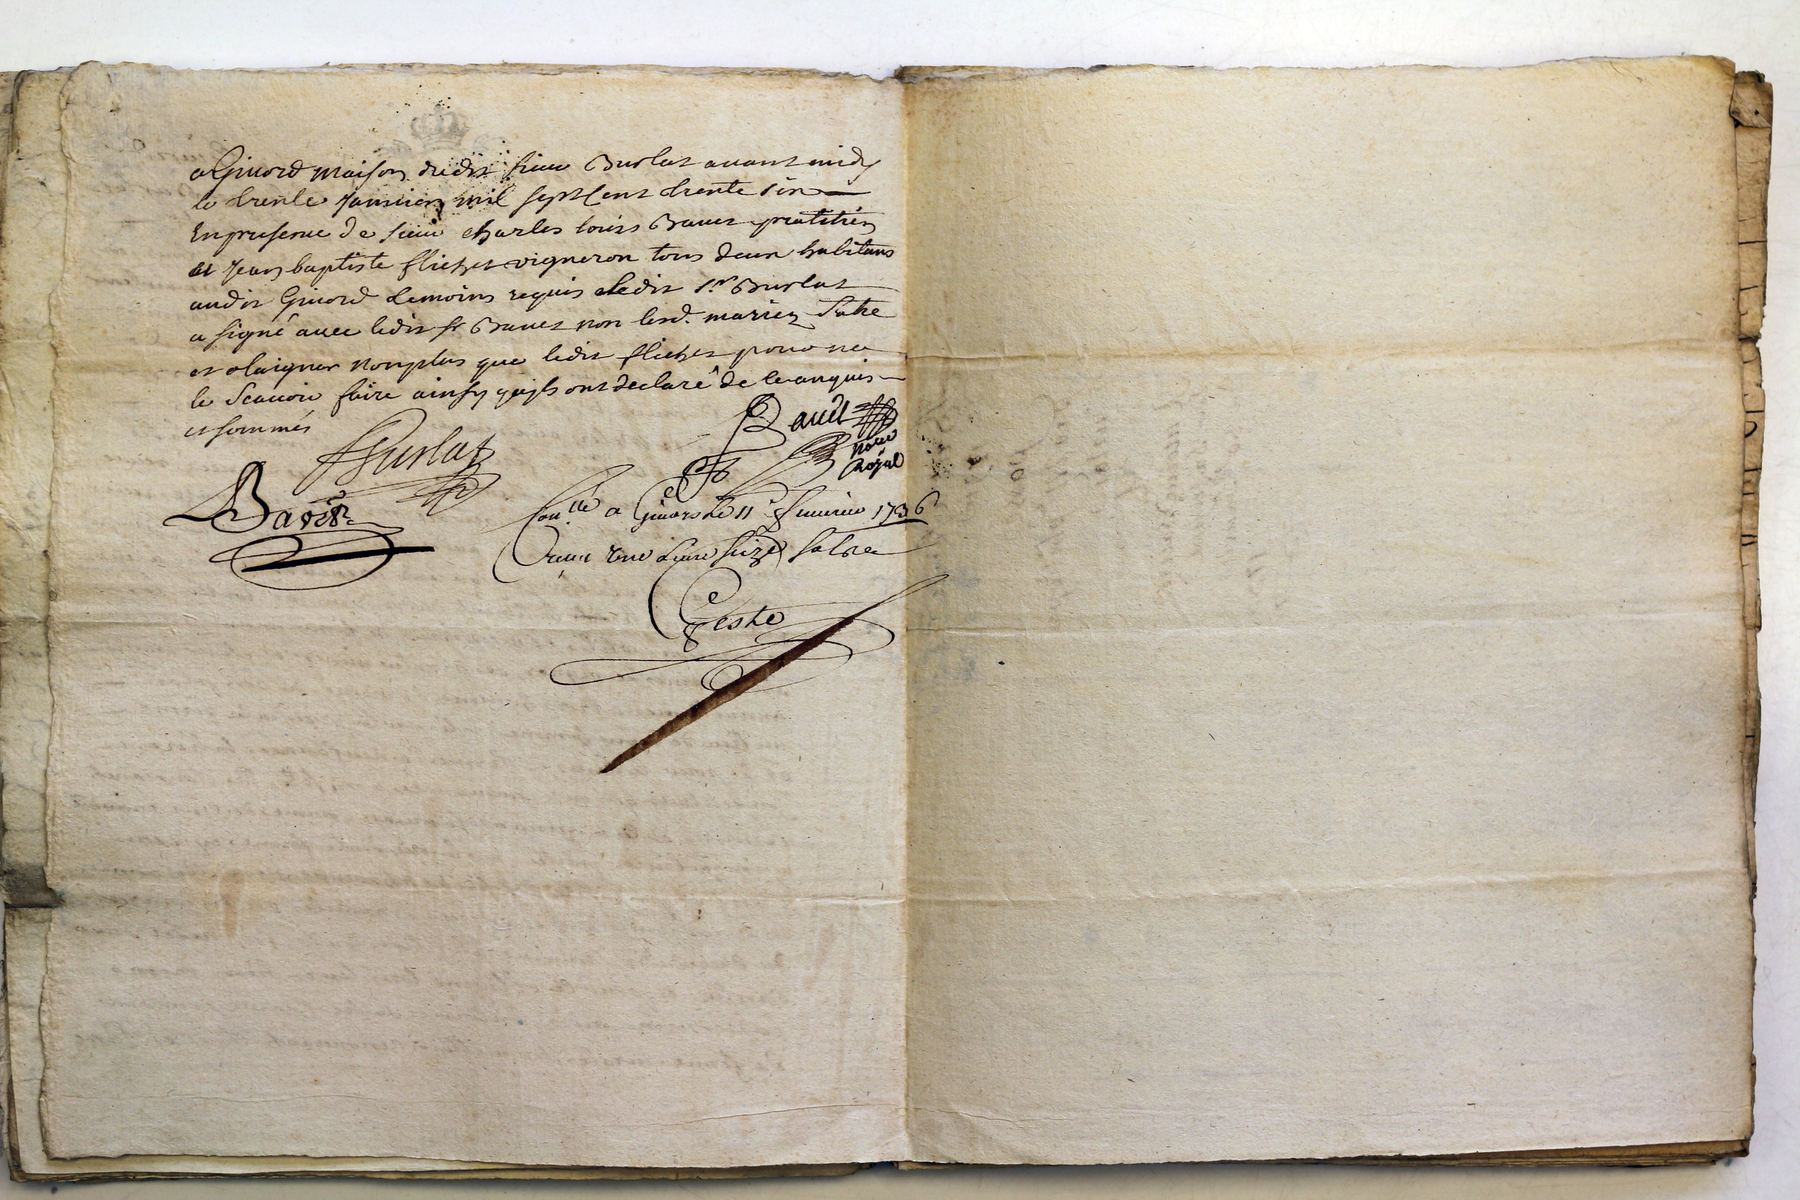 a Givord maison dudit sieur Burlat avant midy
le trente janvier mil sept cent trente six
En presence de sieur charles louis Bavet pratitien
et jean baptiste flichet vigneron tous deux habitans
audit Givord temoins requis ledit sr. Burlat
a signé avec ledit sr Bavet non lesd. mariez
et non plus que ledit flichet pour ne
le scavoir faire ainsy quils ont declaré de ce enquis
et sommés
Burlat
Bavet
nore
Royal
Bavet
Conllé a Givors le 11 fevrier 1736
Reçu une livre seize sols
Geste